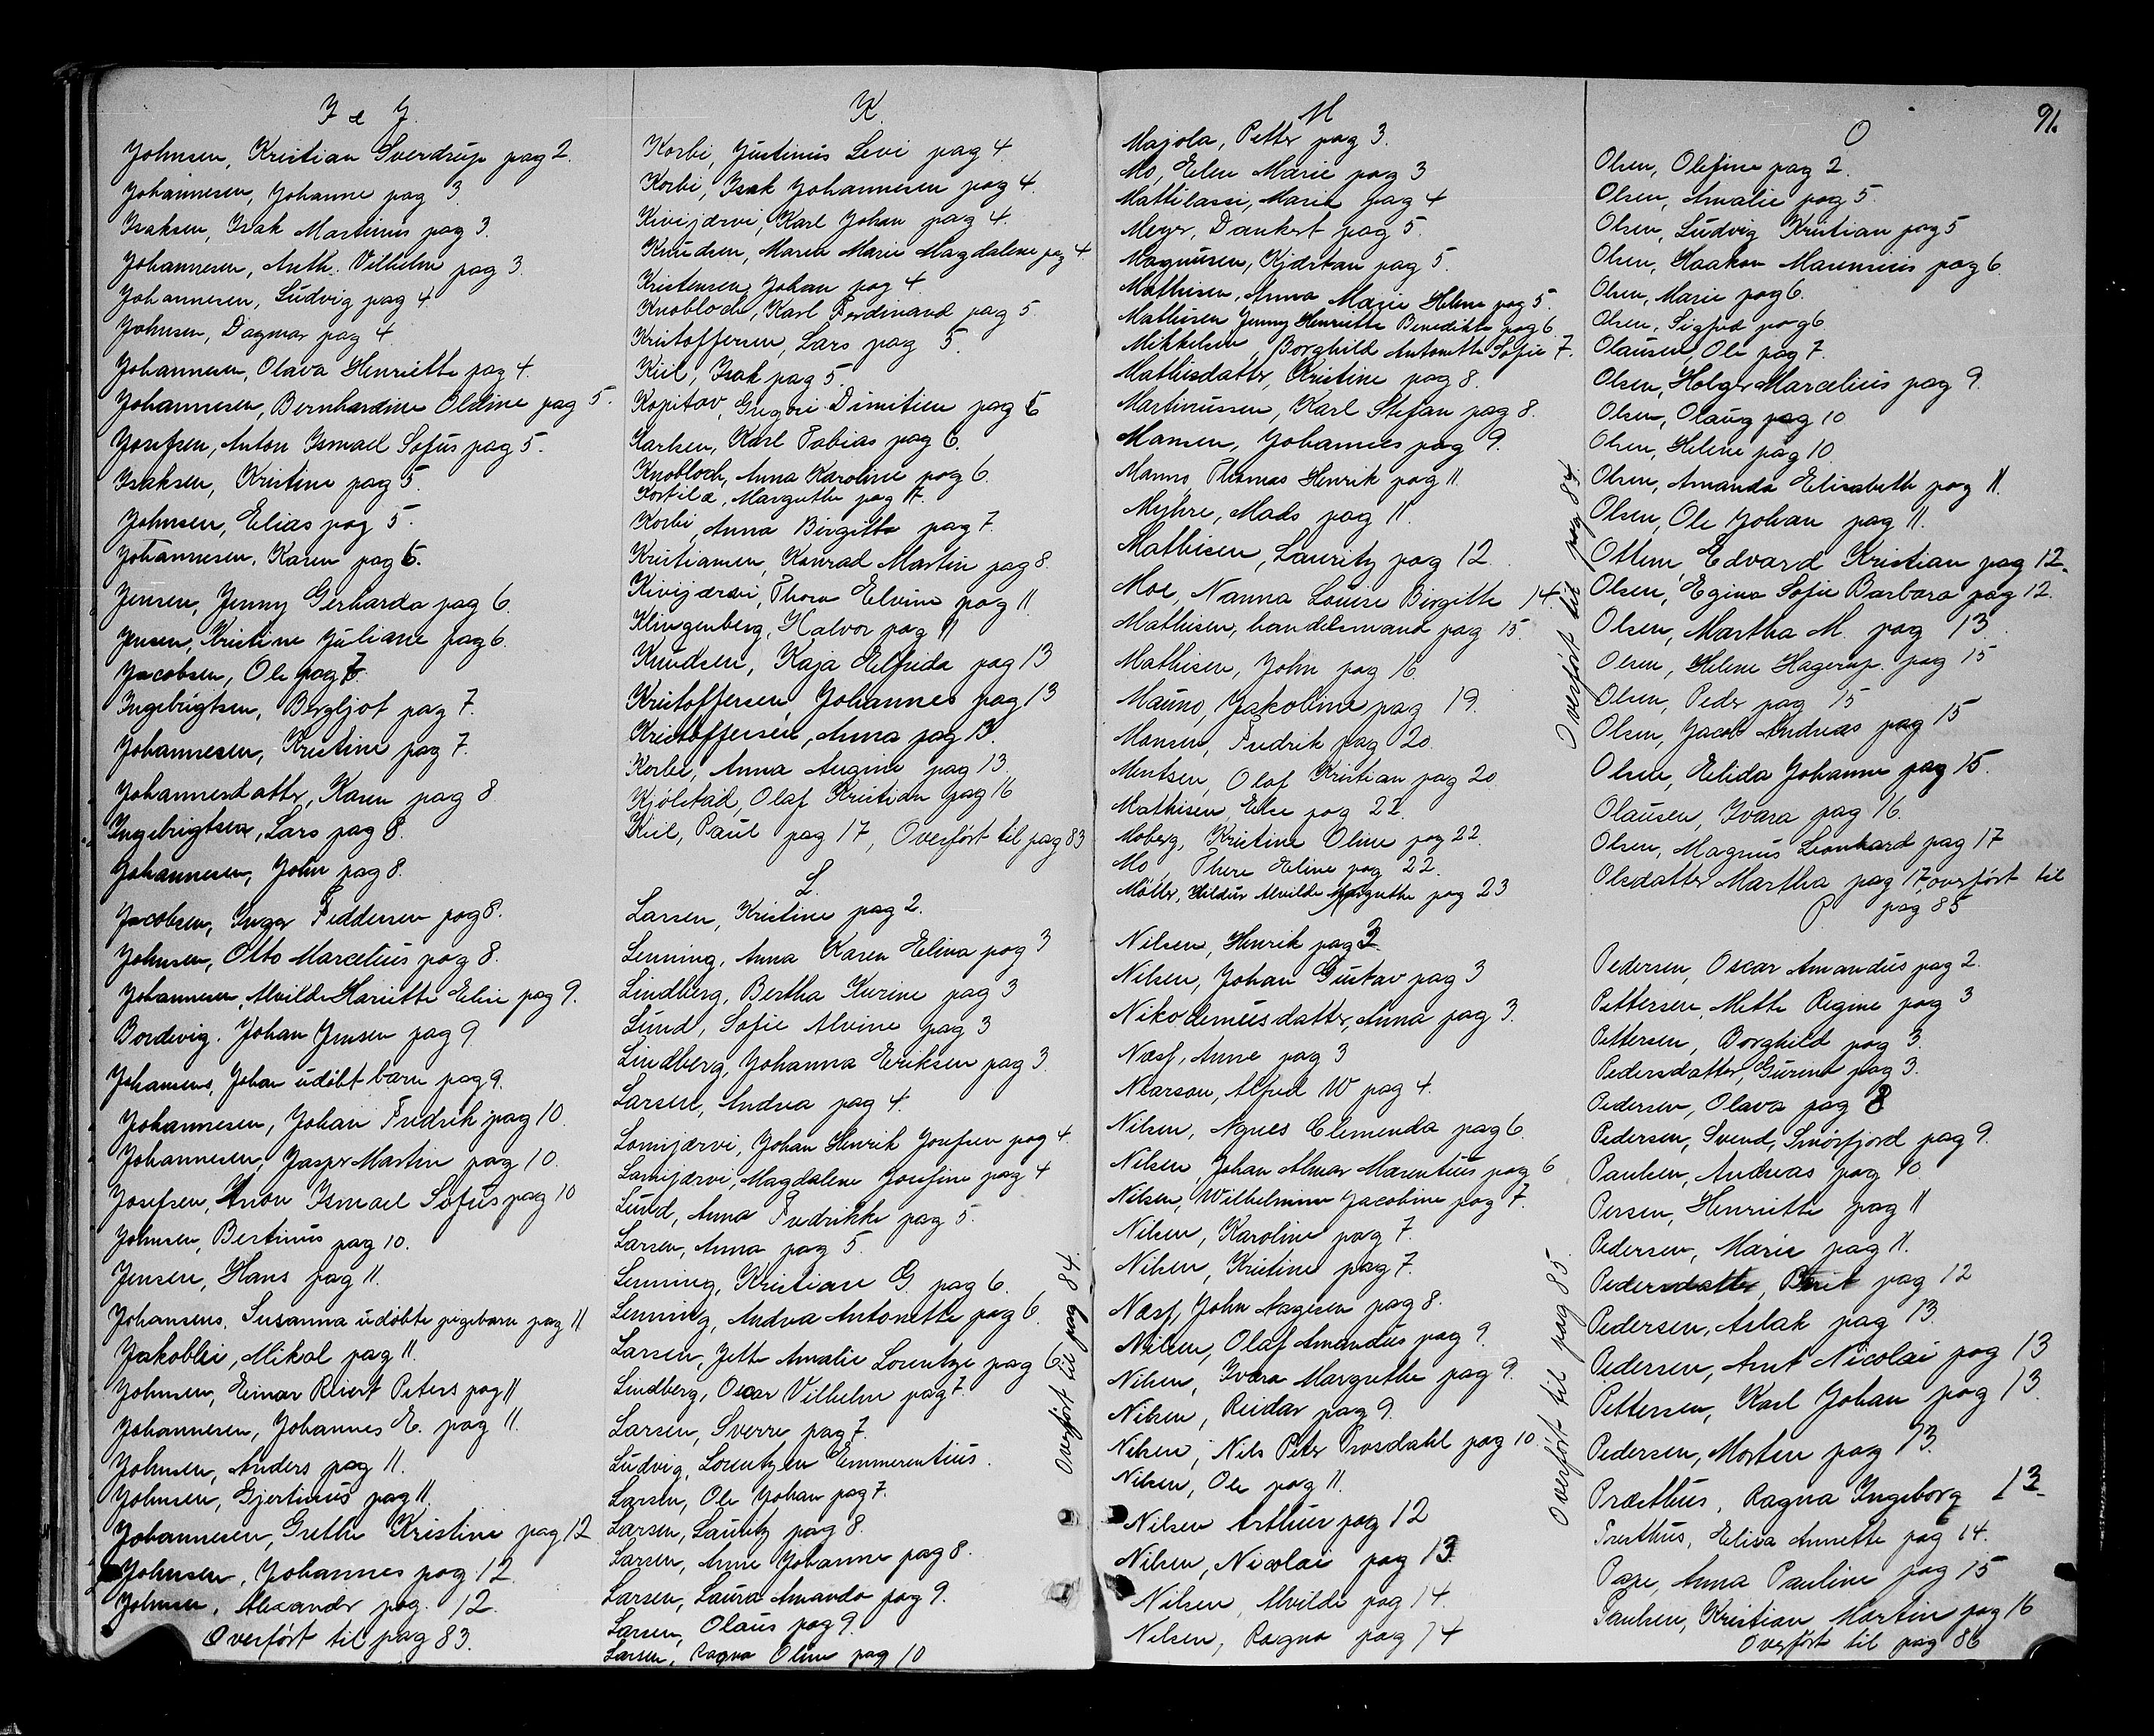 I & J.
Johnsen, Kristian Sverdrup pag 2.
Johannesen, Johanne pag 3.
Isaksen, Isak Martinus pag 3.
Johannesen, Anth. Vilhelm pag 3.
Johannesen, Ludvig pag 4.
Johnsen, Dagmar pag 4
Johannesen, Olava Henriette pag 4.
Johannesen, Bernhardine Oldine pag 5.
Josefsen, Anton Ismael Sofus pag 5.
Isaksen, Kristine pag 5.
Johnsen, Elias pag 5.
Johannesen, Karen pag 6.
Jensen, Jenny Gerharda pag 6.
Jensen, Kristine Juliane pag 6.
Jacobsen, Ole pag 7.
Ingebrigtsen, Bergljot pag 7.
Johannesen, Kristine pag 7.
Johannesdatter, Karen pag 8
Ingebrigtsen, Lars pag 8.
Johannesen, John pag 8.
Jacobsen, Inger Feddersen pag 8.
Johnsen, Otto Marcelius pag 8.
Johannesen, Alvilde Hariette Elise pag 9.
Bordevig. Johan Jensen pag 9
Johansens, Johan udöbt barn pag 9.
Johannesen, Johan Fredrik pag 10.
Johannesen, Jasper Martin pag 10.
Josefsen, Anton Ismael Sofus pag 10
Johnsen, Bertinus pag 10.
Jensen, Hans pag 11.
Johansens, Susanna udöbte pigebarn pag 11
Jakoblii, Mikal pag 11.
Johnsen, Einar Reiert Peters pag 11
Johannesen, Johannes E. pag 11.
Johnsen, Anders pag 11.
Johnsen, Gjertinus pag 11.
Johannesen, Grethe Kristine pag 12
Johnsen, Johannes pag 12.
Johnsen, Alexander pag. 12.
Overført til pag 83.
K.
Korbi, Justinus Levi pag 4.
Korbi, Isak Johannesen pag 4.
Kivijærvi, Karl Johan pag 4.
Knudsen, Maren Marie Magdalene pag 4
Kristensen, Johan pag 4.
Knobloch, Karl Ferdinand pag 5.
Kristoffersen, Lars pag 5.
Kiil, Isak pag 5.
Kopitov, Gregori Dimitien pag 6
Karlsen, Karl Tobias pag 6.
Knobloch, Anna Karoline pag 6.
Kortila, Margrethe pag 7.
Korbi, Anna Birgitta pag 7.
Kristiansen, Konrad Martin pag 8.
Kivijærvi, Thora Elvine pag 11.
Klingenberg, Halvor pag 11
Knudsen, Kaja Elfrida pag 13
Kristoffersen, Johannes pag 13
Kristoffersen, Anna pag 13.
Korbi, Anna Augine pag 13.
Kjölstad, Olaf Kristian pag 16
Kiil, Paul pag 17, Overført til pag 83
L.
Larsen, Kristine pag 2.
Lenning, Anna Karen Elina pag 3
Lindberg, Bertha Kurine pag 3
Lund, Sofie Alvine pag 3
Lindberg, Johanna Eriksen pag 3.
Larsen, Andrea pag 4.
Lomijærvi, Johan Henrik Josefsen pag 4.
Lamijærvi, Magdalene Josefine pag 4
Lund, Anna Fredrikke pag 5.
Larsen, Anna pag 5.
Lenning, Kristiane G. pag 6.
Lenning, Andrea Antonette pag 6.
Larsen, Jette Amalie Lorentze pag 6.
Lindberg, Oscar Vilhelm pag 7.
Larsen, Sverre pag 7.
Ludvig, Lorentzen Emmerentius.
Larsen, Ole Johan pag 7.
Larsen, Lauritz pag 8.
Larsen, Anne Johanne pag 8.
Larsen, Laura Amanda pag 9.
Larsen, Olaus pag 9.
Larsen, Ragna Oline pag 10
Overført til pag 84.
M
Majola, Petter pag 3.
Mo, Elen Marie pag 3
Mattilassi, Marie pag 4
Meyer, Dankert pag 5.
Magnusen, Kjærstan pag 5.
Mathisen, Anna Marie Helene pag 5.
Mathisen Jenny Henriette Benedikte pag 6
Mikkelsen, Borghild Antonette Sofie 7.
Mathisdatter, Kristine pag 8.
Martinussen, Karl Stefan pag 8.
Mansen, Johannes pag 9.
Manno Thomas Henrik pag 11.
Myhre, Mads pag 11.
Mathisen, Lauritz pag 12
Moe, Nanna Louise Birgitte 14.
Mathisen, handelsmand pag 15.
Mathisen, John pag 16.
Mauno, Jakobine pag 19.
Monsen, Fredrik pag 20.
Mentsen, Olaf Kristian pag 20
Mathisen Else pag 22.
Moberg, Kristine Oline pag 22.
Mo, There Eline pag 22.
Möller, Hildur Alvilde Margrethe pag 23
Nilsen, Henrik pag 3.
Nilsen, Johan Gustav pag 3
Nikodemusdatter, Anna pag 3.
Næss, Anne pag 3
Nlarson, Alfred W pag 4.
Nilsen, Agnes Clemenda pag 6.
Nilsen, Johan Almar Marentius pag 6
Nilsen, Wilhelmine Jacobine pag 7.
Nilsen, Karoline pag 7.
Nilsen, Kristine pag 7.
Næss, John Aagesen pag 8.
Nilsen, Olaf Amandus pag 9.
Nilsen, Ivara Margrethe pag 9.
Nilsen, Reidar pag 9.
Nilsen, Nils Peter Prosdahl pag 10.
Nilsen, Ole pag 11.
Nilsen Arthur pag 12
Nilsen, Nicolai pag 13.
Nilsen, Alvilde pag 14.
Nilsen, Ragna pag 14
Overført til pag 84.
Overført til pag 85.
91.
O
Olsen, Olefine pag 2.
Olsen, Amalie pag 5.
Olsen, Ludvig Kristian pag 5
Olsen, Haakon Marensius pag 6.
Olsen, Marie pag 6.
Olsen, Sigfred pag 6.
Olausen, Ole pag 7.
Olsen, Holger Marcelius pag 9.
Olsen, Olaug pag 10
Olsen, Helene pag 10.
Olsen, Amanda Elisabeth pag 11.
Olsen, Ole Johan pag 11.
Ottem, Edvard Kristian pag 12.
Olsen, Egina Sofie Barbara pag 12.
Olsen, Martha M. pag 13.
Olsen, Helene Hagerup. pag 15
Olsen, Peder pag 15
Olsen, Jacob Andreas pag 15
Olsen, Elida Johanne pag 15.
Olausen, Ivara pag 16.
Olsen, Magnus Leonhard pag 17
Olsdatter Martha pag 17, overført til
pag 85
P
Pedersen, Oscar Amandus pag 2.
Pettersen, Mette Regine pag 3
Pettersen, Borghild pag 3.
Pedersdatter, Gurine pag 3.
Pedersen, Olava pag 8
Pedersen, Svend, Smörfjord pag 9.
Paulsen, Andreas pag 10.
Persen, Henriette pag 11
Pedersen, Marie pag 11.
Pedersdatter, Berit pag 12
Pedersen, Aslak pag 13.
Pedersen, Arnt Nicolai pag 13
Pettersen, Karl Johan pag 13.
Pedersen, Morten pag 13.
Præsthus, Ragna Ingeborg 13
Presthus, Elisa Annette pag 14.
Pape, Anna Pauline pag 15
Paulsen, Kristian Martin pag 16
Overført til pag 86